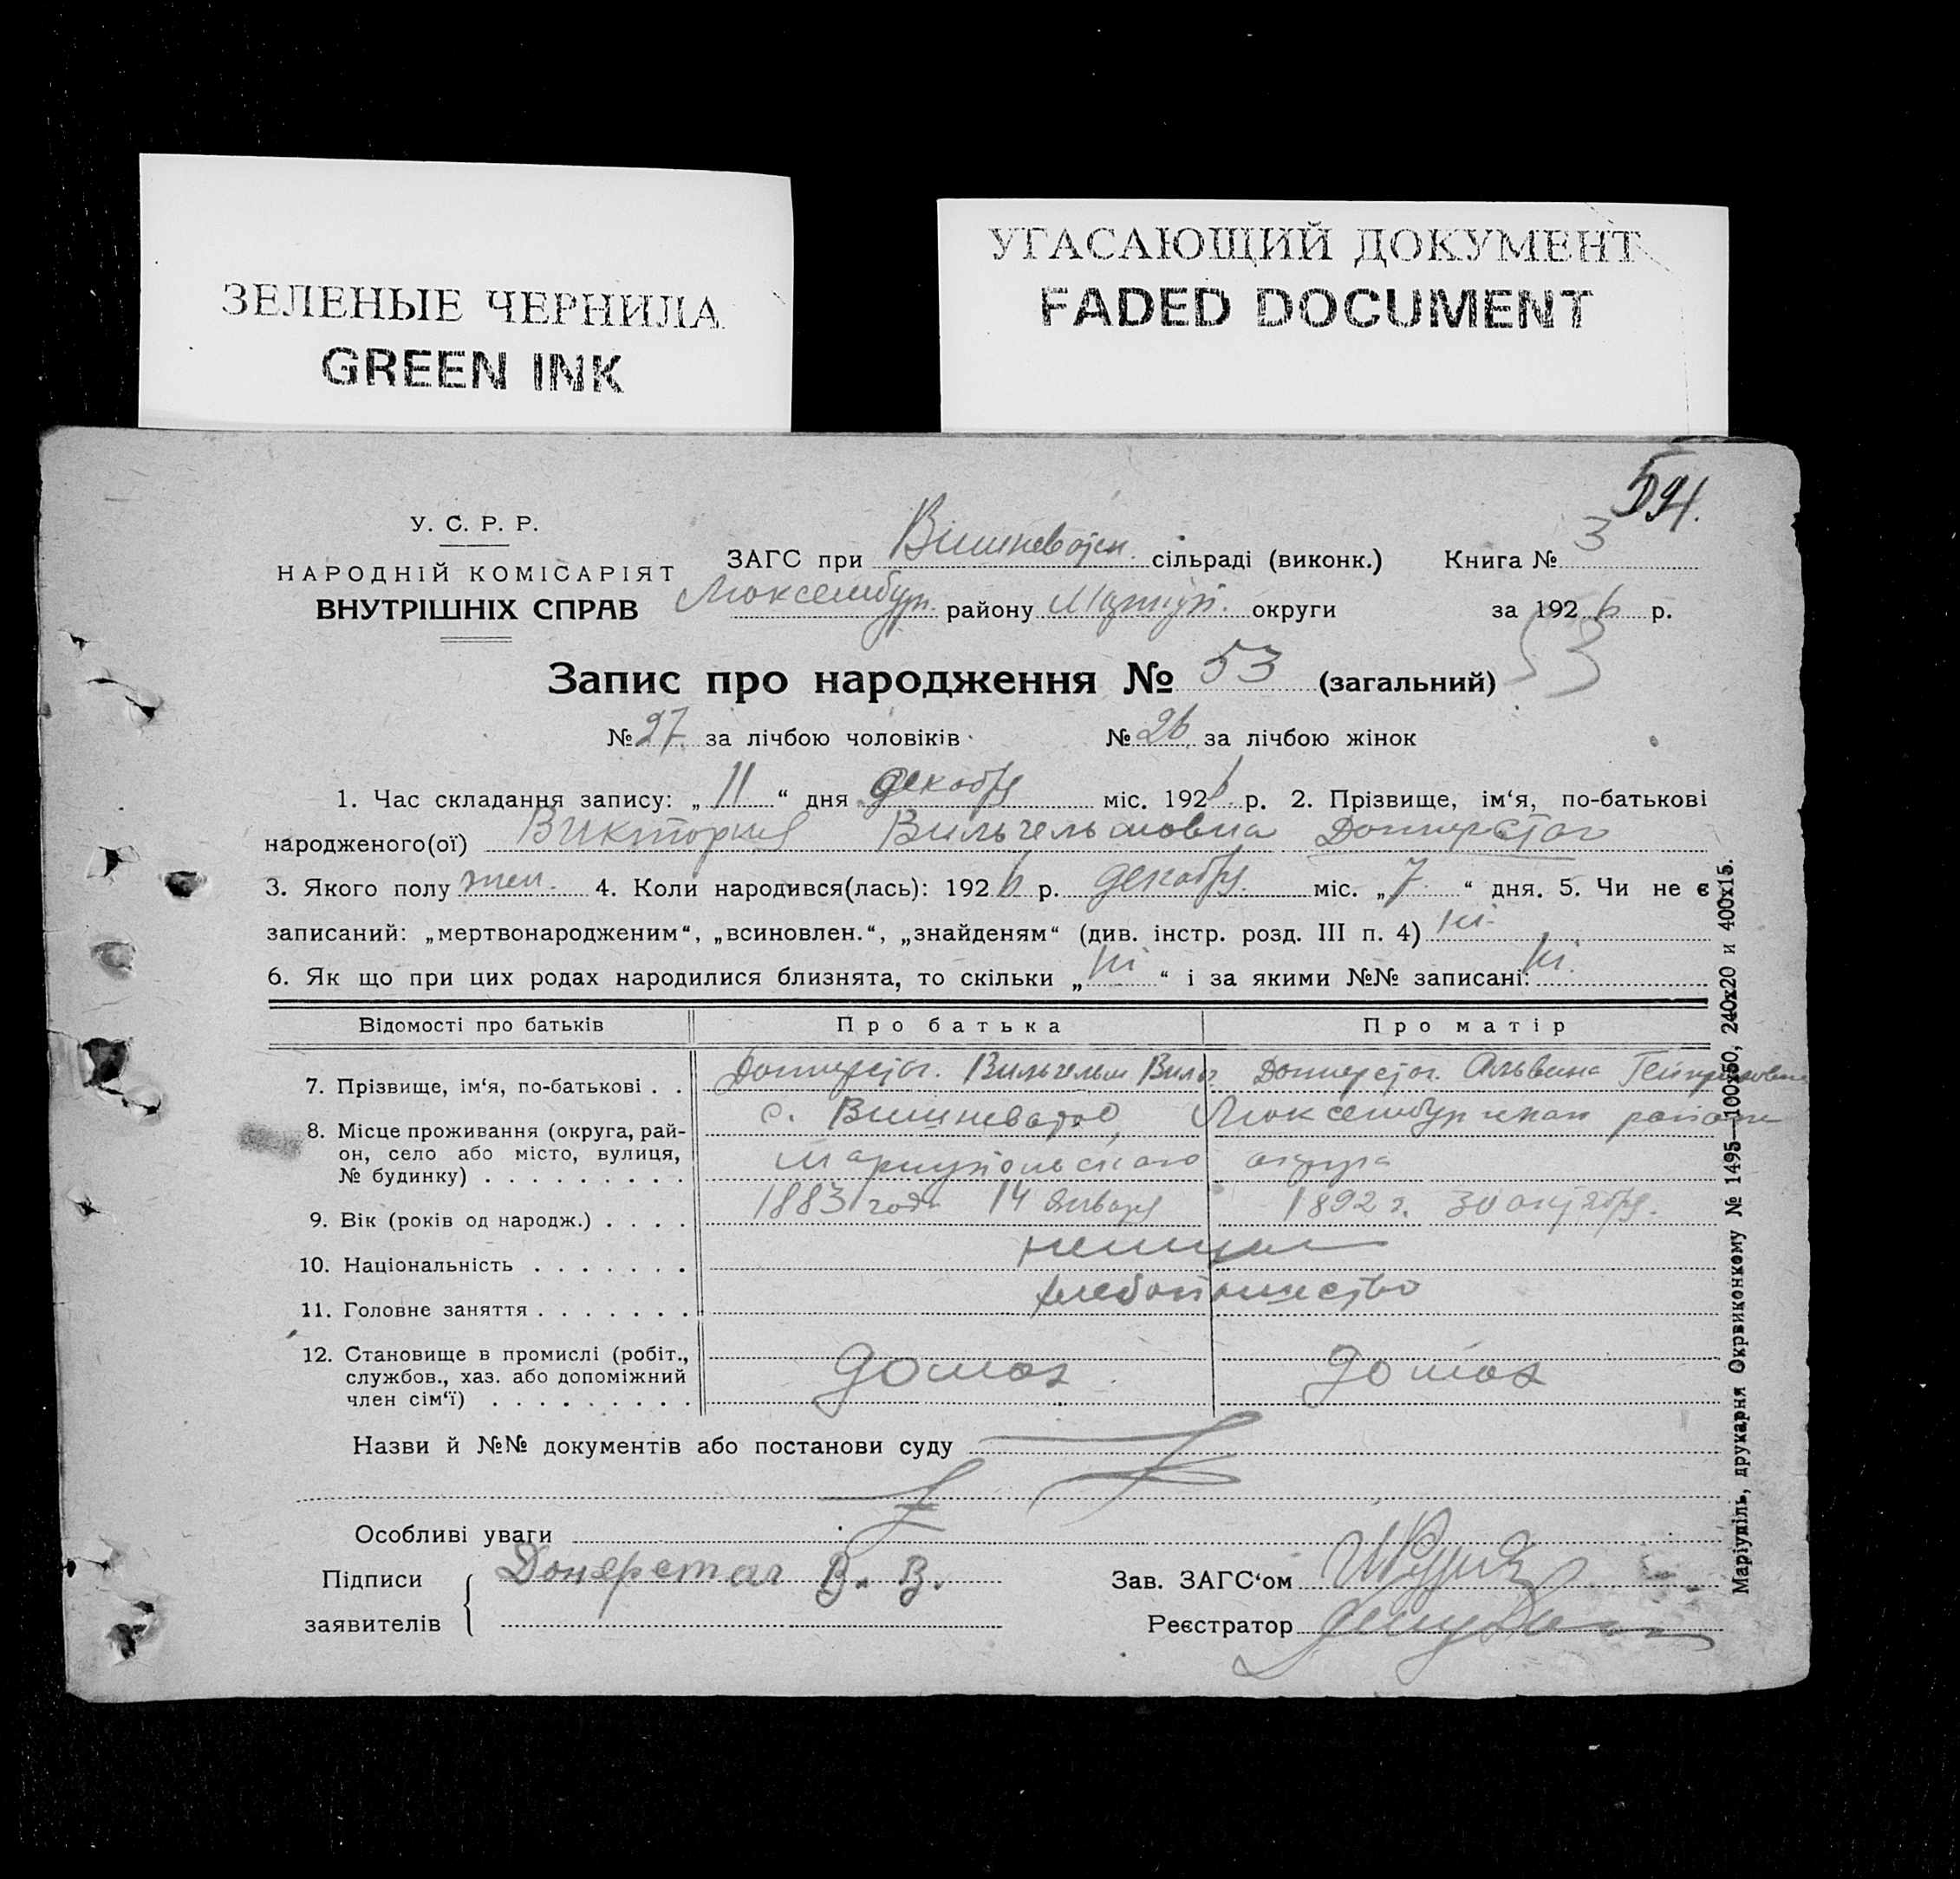 ЗЕЛЕНЫЕ ЧЕРНИЛА
GREEN INK
УГАСАЮЩИЙ ДОКУМЕНТ
FADED DOCUMENT
594.
У. С. Р. Р.
НАРОДНІЙ КОМІСАРІЯТ
ВНУТРІШНІХ СПРАВ
ЗАГС при Вишневатск. сільраді (виконк.) Книга № 3
Люксембур. району Маріуп. округи за 1926 р.
Запис про народження № 53 (загальний) 53
№ 27. за лічбою чоловіків № 26 за лічбою жінок
1. Час складання запису: „ 11 “ дня декабря міс. 1926 р. 2. Прізвище, ім‘я, по-батькові
народженого(ої) Виктория Вильгельмовна Доннерстаг
3. Якого полу жен. 4. Коли народився(лась): 1926 р. декабря. міс. „ 7 “ дня. 5. Чи не є
записаний: „мертвонародженим“, „всиновлен.“, „знайденям“ (див. інстр. розд. III п. 4) ні.
6. Як що при цих родах народилися близнята, то скільки „ ні “ і за якими №№ записані: ні.
Відомості про батьків Про батька Про матір
7. Прізвище, ім‘я, по-батькові . . Доннерстаг. Вильгельм Вильг. Доннерстаг. Альвина Гейнриховна
8. Місце проживання (округа, рай-
он, село або місто, вулиця,
№ будинку) . . . . . . . . .
с. Вишневатое, Люксембургскаи района
Мариупольского округа
9. Вік (років од народж.) . . . . 1883 года 14 января 1892 г. 30 октября.
10. Національність . . . . . . . немцы
11. Головне заняття . . . . . . . хлебопашество
12. Становище в промислі (робіт.,
службов., хаз. або допоміжний
член сім‘ї) . . . . . . . . .
домох. домох
Назви й №№ документів або постанови суду
Особливі уваги
Підписи Донерстаг В. В. Зав. ЗАГС‘ом
заявителів Реєстратор
Маріупіль, друкарня Окрвиконкому № 1495—100х50, 240х20 и 400х15.